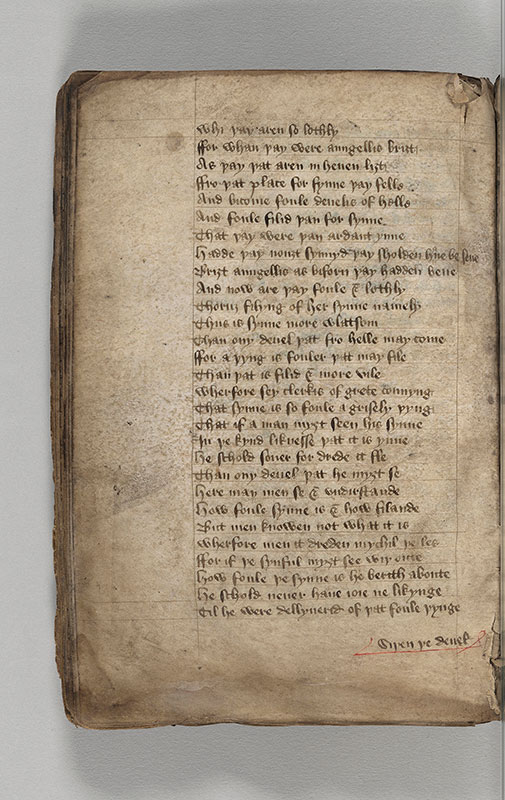 Whi þay aren so lothly
ffor whan þay were aungellis briȝt
As þay þat aren in heuen liȝt
ffro þat place for synne þay felle
And bicome foule deuelis of helle
And foule filid þan for synne
That þay were þan ardaut ynne
Hadde þay nouȝt synnyd þay sholden haue be sene
Briȝt aungellis as biforn þay hadden bene
And now are þay foule & lothly
Thorȝ filyng of her synne namely
Thus is synne more wlatsom
Than ony deuel þat fro helle may come
ffor a þyng is fouler þat may file
Than þat is filid & more vile
Wherfore sey clerkis of grete connyng
That synne is so foule a grisely þyng
That if a man myȝt seen his synne
In þe kynd liknesse þat it is ynne
He schold soner for drede it fle
Than ony deuel þat he myȝt se
Here may men se & vndirstande
How foule synne is & how filande
But men knowen not what it is
Wherfore men it dreden mychil þe les
ffor if þe synful myȝt see wiþ oute
How foule þe synne is he berith aboute
He schold neuer haue ioie ne likynge
Til he were delyuerid of þat foule þynge
Siþen þe deuel